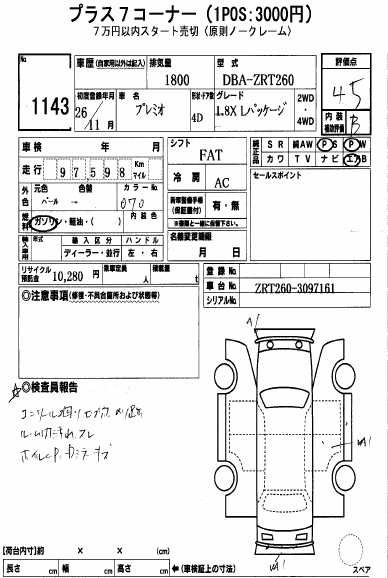 プラス7コーナー(1POS:3000円)
7万円以内スタート売切(原則ノークレーム)
No
1143
車歴(自家用以外は記入)
排気量
1800
型式
DBA-ZRT260
評価点
4.5
初度登録年月
26/11月
車名
プレミオ
形状・ドア数
4D
グレード
1.8X Lパッケージ
2WD・4WD
内装補助評価
B
車検 年 月
シフト
FAT
純正品
SR 純AW PS PW
カワ TV ナビ エアB
走行 97598 Km マイル
冷房
AC
セールスポイント
外色
元色
パール
色替
→
カラーNo
070
新車整備手帳(保証書付)
有・無
※書類と一緒に保管して下さい。
燃料
ガソリン・軽油・( )
内装色
輸入車用
年式
輸入区分
ディーラー・並行
ハンドル
左・右
名義変更期限
月 日
リサイクル預託金
10,280円
乗車定員
人
積載量
t
登録No
車台No
ZRT260-3097161
シリアルNo
◎注意事項(修復・不具合箇所および状態等)
A1
☆◎検査員報告
ルーム
WA1
WA1
【荷台内寸】約 × × (cm)
長さ cm 幅 cm 高さ cm ←(車検証上の寸法)
スペア